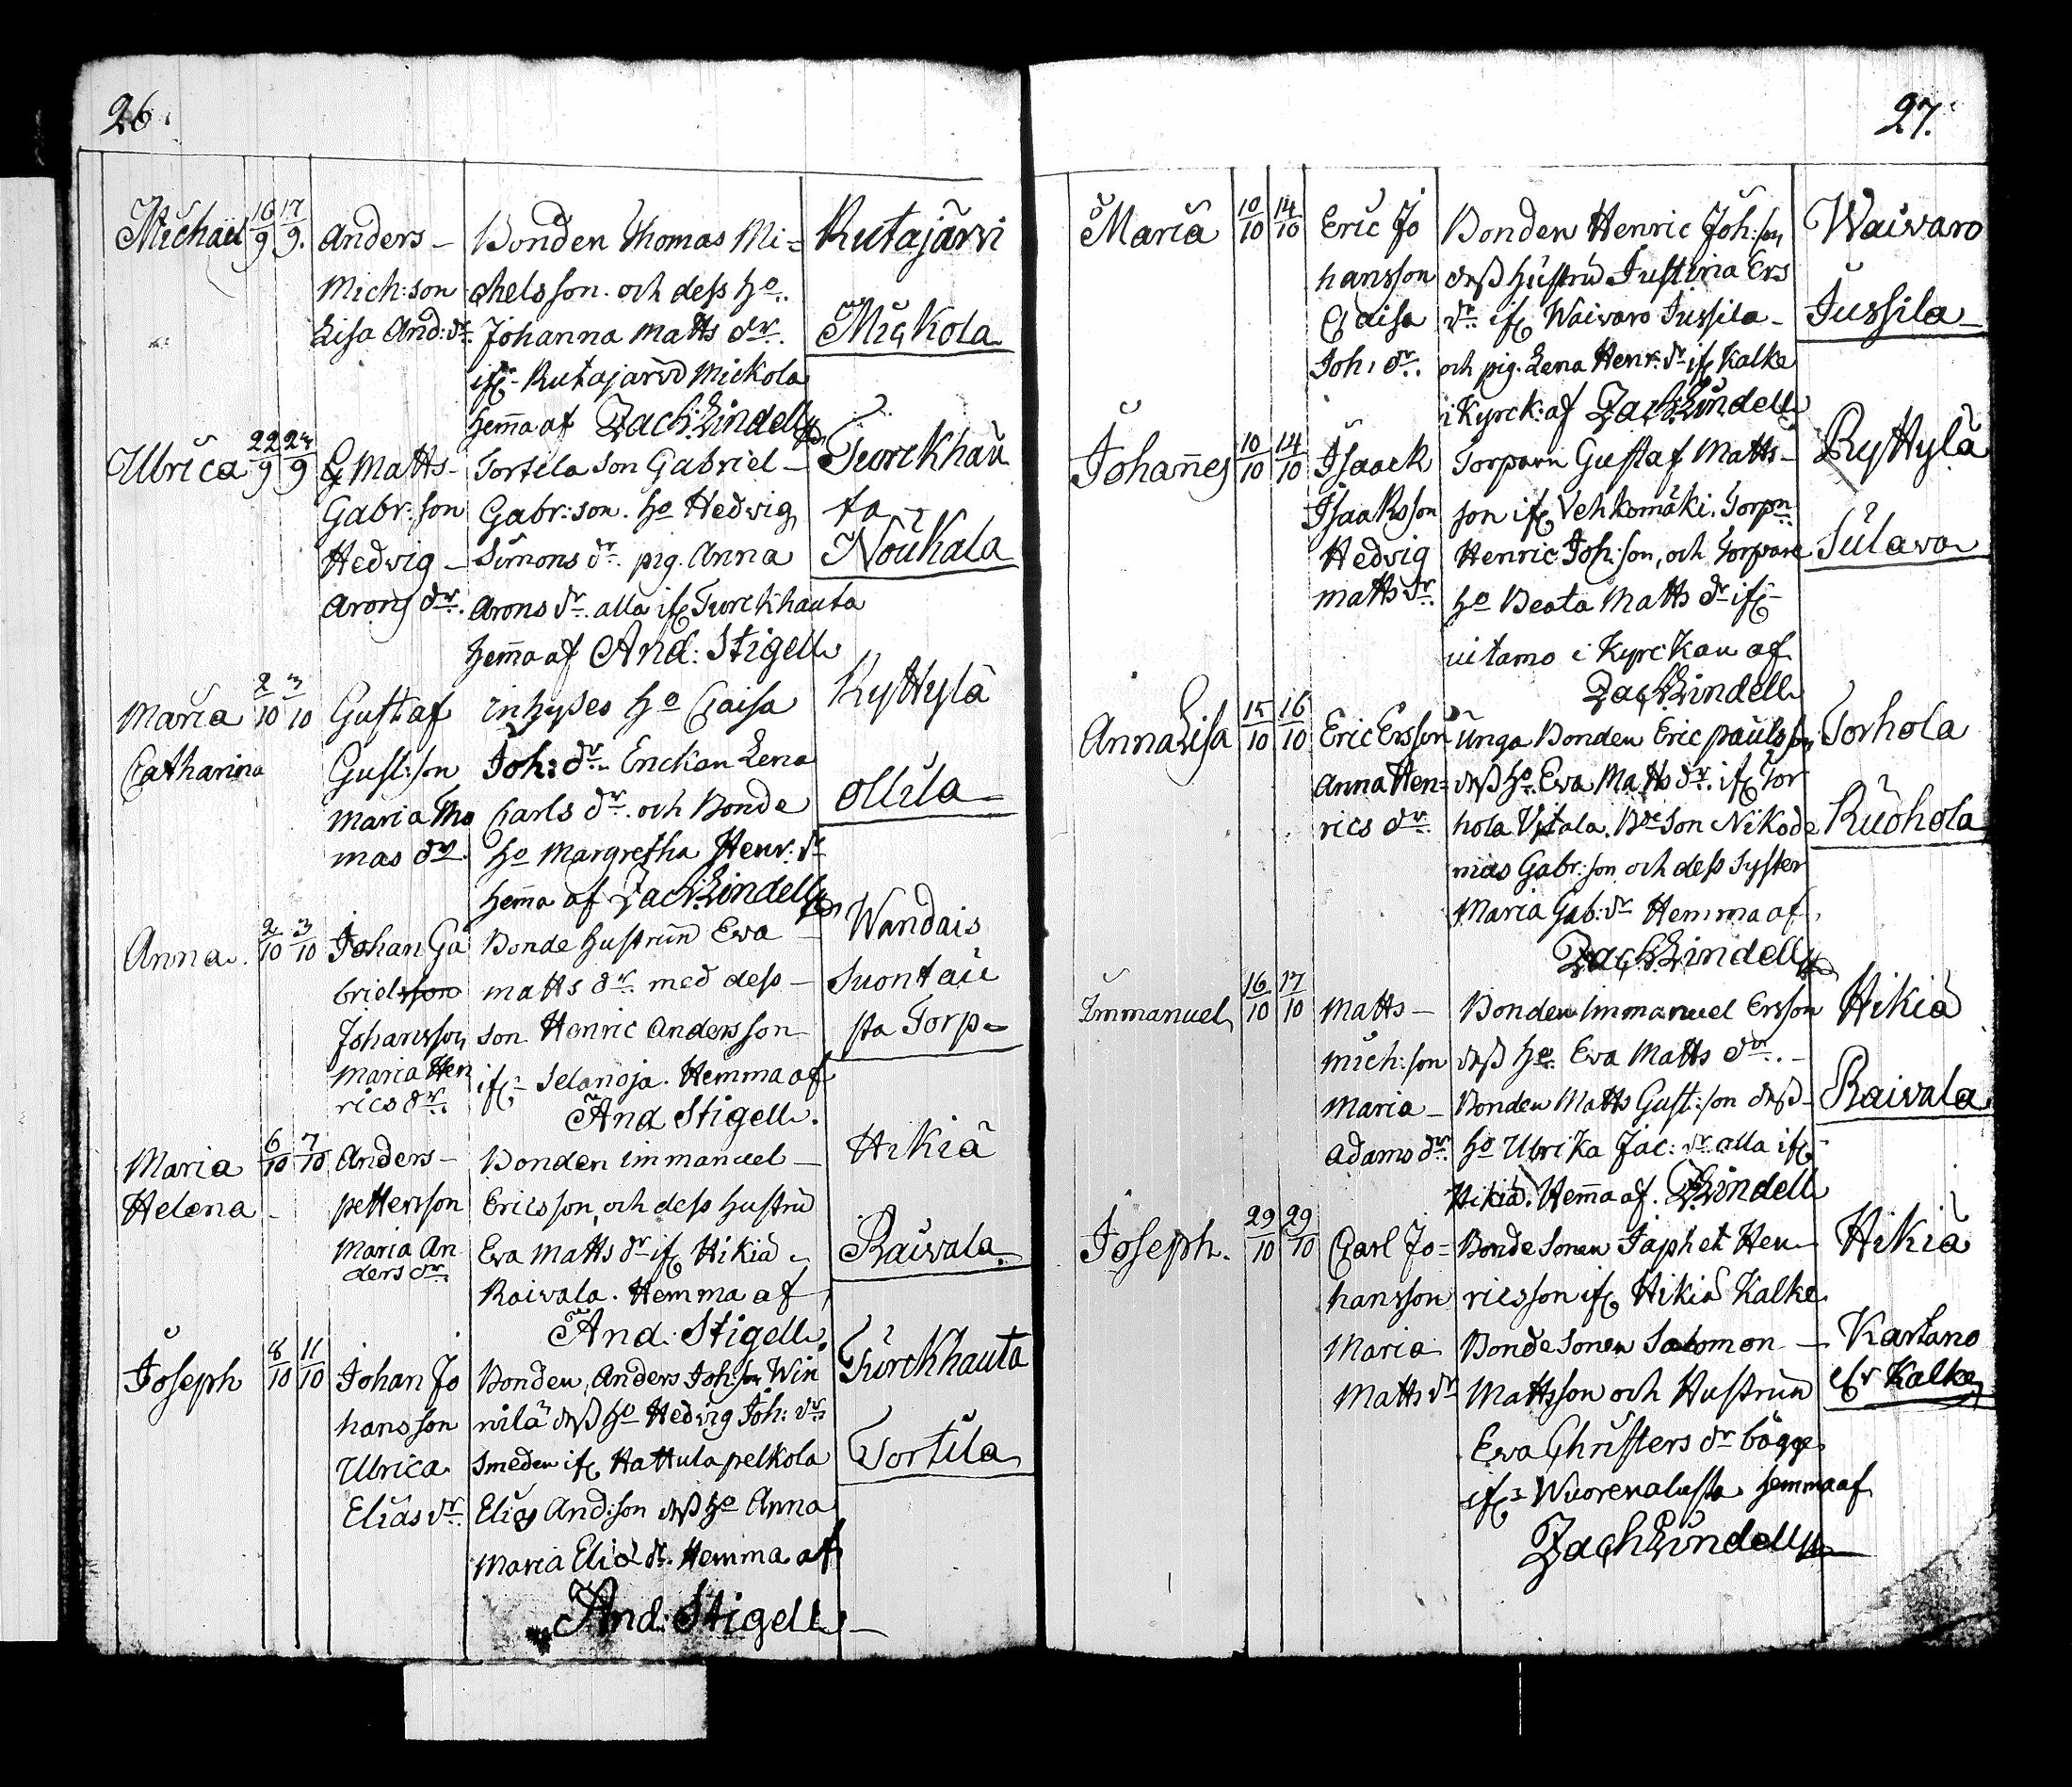 26.
Michaël 16/9 17/9. Anders — Bonden Thomas Mi= Rutajärvi
Mich:son chelsson. och dess ho.
Lisa And: dr. Johanna Matts dr. Mickola
ifr. Rutajärvi Mickola
hem̄a af Zach: Lindell
Ulrica 22/9 24/9 Matts Tortila Son Gabriel — Turckhau
Gabr: son Gabr: son. ho Hedvig ta
Hedvig — Simons dr. pig. Anna Noukala
Arons dr. Arons dr. alla ifr. Turckhauta
hem̄a af And: Stigell
Maria 2/10 3/10 Gustaf inhyses ho Caisa Ryttylä
Catharina Gust:son Joh: dr. Enckan Lena
Maria Tho Carls dr. och Bonde Ollila
mas dr. ho Margretha Henr: dr
hem̄a af Zach: Lindell
Anna. 2/10 3/10 Johan Ga Bonde hustrun Ewa — Wandais
briels son matts dr. med dess — Suontau
Johansson son Henric Andersson sta Torp
Maria Hen ifr. Selanoja. Hemma af
rics dr. And Stigell.
Maria 6/10 7/10 Anders — Bonden immanuel — Hikiä
Helena — pettersson Ericsson, och dess hustru
Maria An Eva Matts dr ifr Hikiä Raivala
ders dr. Raivala. Hemma af
And: Stigell
Joseph 8/10 11/10 Johan Jo Bonden, Anders Joh:son Win Turckhauta
hansson nilä dess ho Hedvig Joh: dr.
Ulrica Smeden ifr Hattula pelkola Tortila
Elias dr. Elias And:son dess ho Anna
Maria Elia dr. Hemma af
And: Stigell —
27.
Maria 10/10 14/10 Eric Jo Bonden Henric Joh:son Waivaro
hansson dess hustru Justina Ers
Caisa dr. ifr Waivaro Jussila — Jussila
Joh: dr. och pig. Lena Henr: dr ifr Kalke
i Kyrck: af Zach: Lindell
Johan̄es 10/10 14/10 Isaack Torparn Gustaf Matts — Ryttylä
Isaaksson son ifr Vehkomäki. Torpn
Hedvig Henric Joh:son, och Torpare Sulava
matts dr. ho Beata Matts dr ifr
uitamo i Kyrckan af
Zach: Lindell
Anna Lisa 15/10 16/10 Eric Ersson Unga Bonden Eric paulsson Torhola
Anna Hen= dess ho. Ewa Matts dr. ifr Tor
rics dr. hola Ylitala. Bde Son Nikode Ruohola
mus Gabr: son, och dess Syster
Maria Gab: dr Hemma af
Zach: Lindell
Immanuel 16/10 17/10 Matts — Bonden immanuel Ersson Hikiä
mich:son dess ho. Eva Matts dr. —
Maria — Bonden Matts Gust:son dess — Raivala
Adams dr. ho Ulrika Jac: dr. alla ifr
Hikiä. Hem̄a af. Z. Lindell
Joseph. 29/10 29/10 Carl Jo= Bonde Sonen Japhet Hen Hikiä
hansson ricsson ifr Hikiä Kalke
Maria Bonde Sonen Salomon — Kartano
Matts dr Mattsson och Hustrun Kalke
Ewa Christers dr bägge
ifr Wuorenalusta hemma af
Zach Lindell